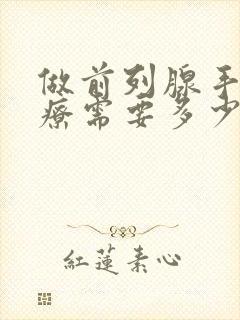 做前列腺手
疗需要多少
红莲素心